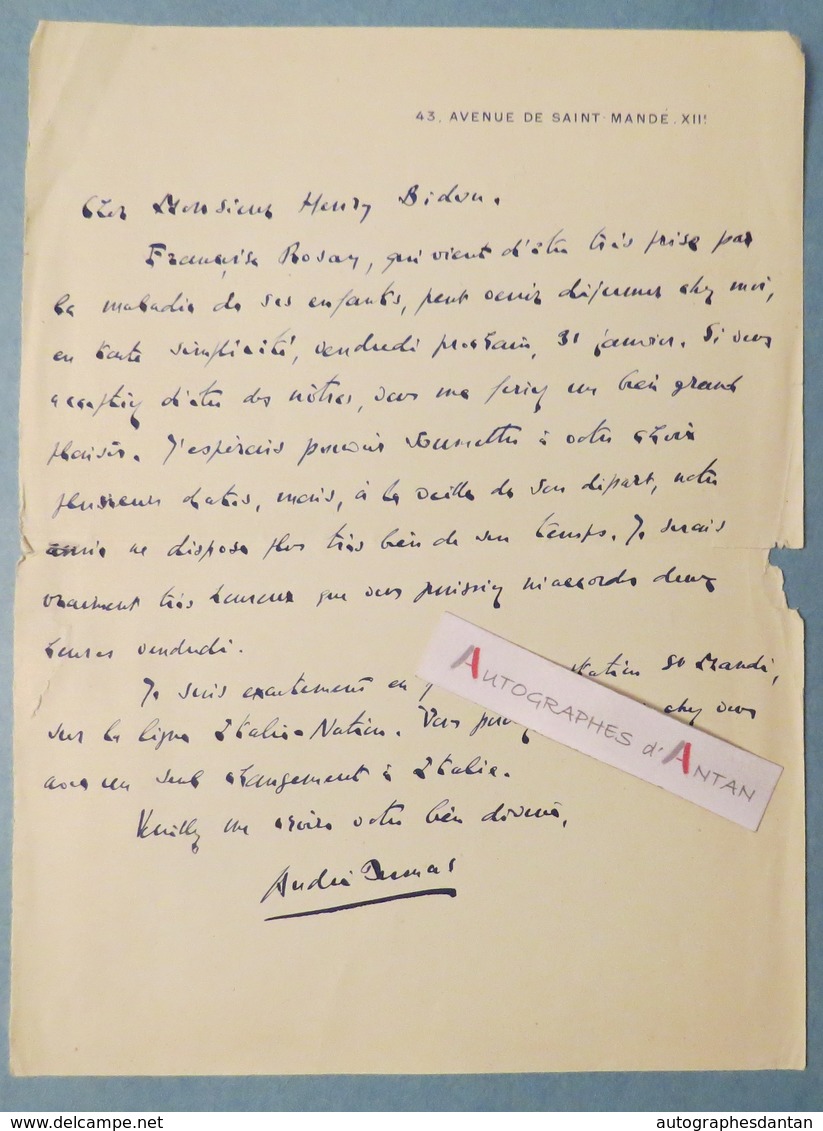 43, AVENUE DE SAINT-MANDÉ. XIIe
Cher Monsieur Henry Bidou.
Françoise Rosay, qui vient d'être très prise par
la maladie de ses enfants, peut venir déjeuner chez moi,
en toute simplicité, vendredi prochain, 31 janvier. Si vous
acceptiez d'être des nôtres, vous me feriez un bien grand
plaisir. J'espérais pouvoir soumettre à votre choix
plusieurs dates, mais, à la veille de son départ, notre
amie ne dispose plus très bien de son temps. Je serais
vraiment très heureux que vous puissiez m'accorder deux
heures vendredi.
Je suis exactement en station St Mandé,
sur la ligne Italie-Nation. Vous chez vous
avec un seul changement à Italie.
Veuillez me croire votre bien dévoué,
André Dumas
AUTOGRAPHES d'ANTAN
delcampe.net
autographesdantan